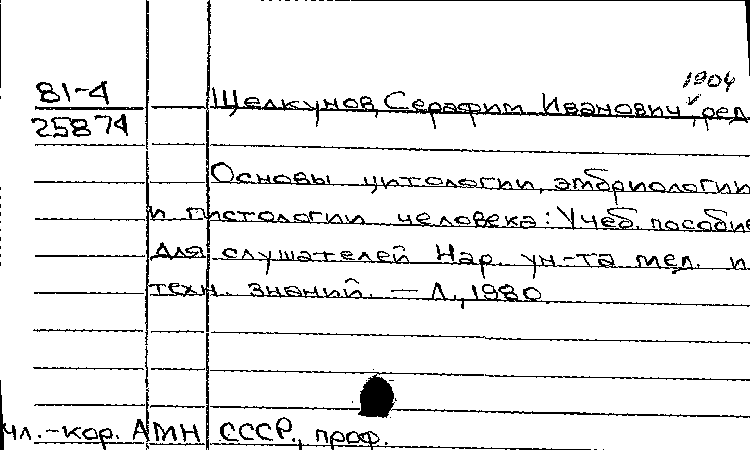 1904
81-4 Щелкунов, Серафим Иванович, ред.
25874
Основы цитологии, эмбриологии
и гистологии человека: Учеб. пособие
для слушателей Нар. ун-та мед. и
техн. знаний. — Л., 1980.
чл.-кор. АМН СССР, проф.